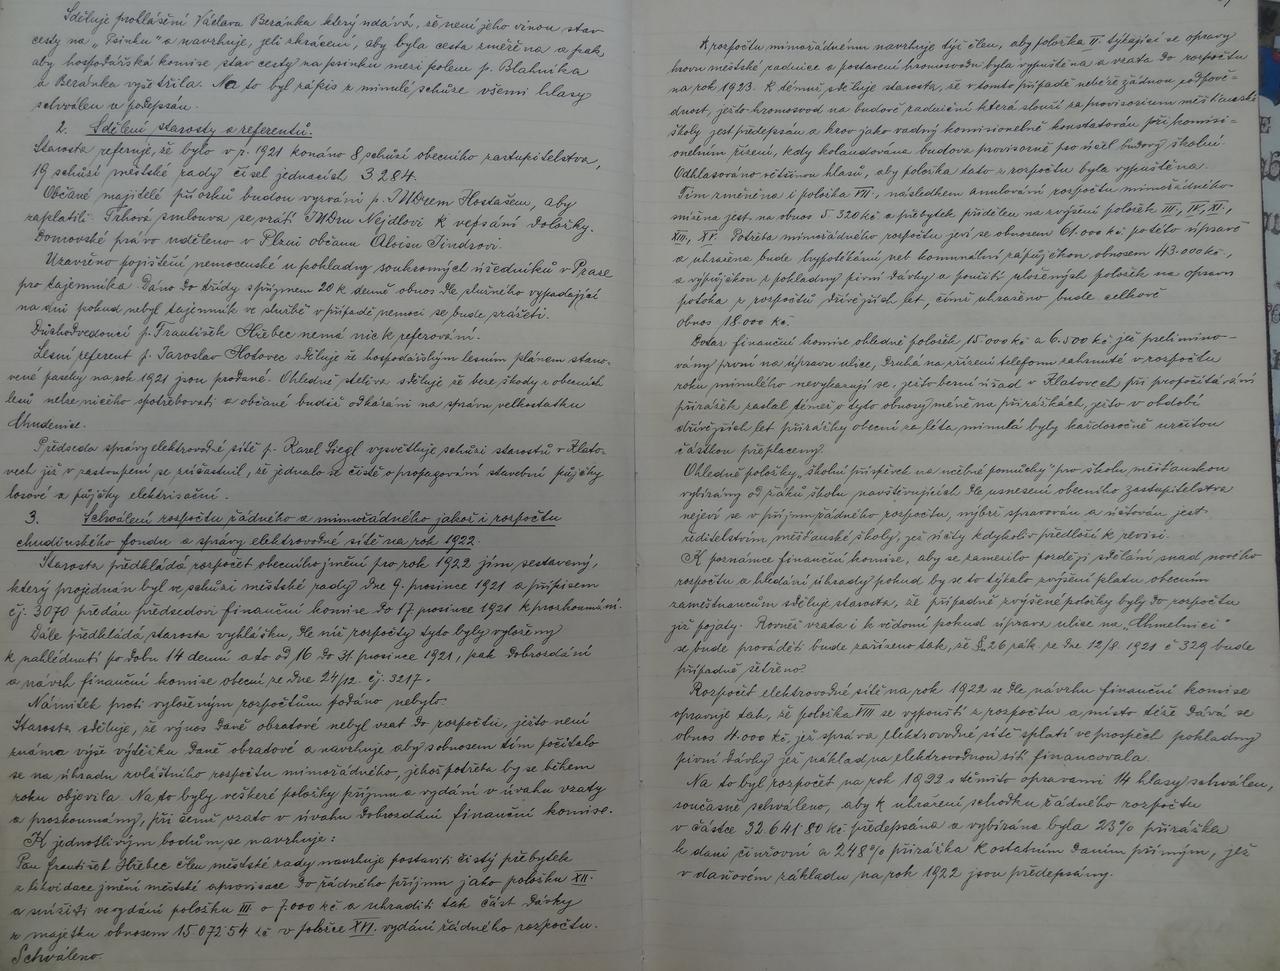 Sděluje prohlášení Václava Beránka který udává, že není jeho vinou stav
cesty na „Psinku" a navrhuje, jeli zkrácení, aby byla cesta změřena a pak,
aby hospodářská komise stav cesty na psinku mezi polem p. Blahníka
a Beránka vyšetřila. Na to byl zápis z minulé schůze všemi hlasy
schválen a podepsán.
2. Sdělení starosty a referentů.
Starosta referuje, že bylo v r. 1921 konáno 8 schůzí obecního zastupitelstva,
19 schůzí městské rady čísel jednacích 3.284.
Občané majitelé budou vyzváni p. JUDrem Hostašem, aby
zaplatili. Trhová smlouva se vrátí JUDru Nejdlovi k vepsání doložky.
Domovské právo uděleno v Plzni občanu Aloisu Jindrovi.
Uzavřeno pojištění nemocenské u pokladny soukromých úředníků v Praze
pro tajemníka. Dáno do třídy s příjmem 20 k denně obnos dle služného vypadající
na dni pokud nebyl tajemník ve službě v případě nemoci se bude srážeti.
Důchodvedoucí p. František Hřebec nemá nic k referování.
Lesní referent p. Jaroslav Hodovec sděluje že hospodářským lesním plánem stano-
vené paseky na rok 1921 jsou prodané. Ohledně steliva sděluje že beze škody z obecních
lesů nelze ničeho spotřebovati a občané budiž odkázáni na správu velkostatku
Chudenice.
Předseda správy elektrovodné sítě p. Karel Siegl vysvětluje schůzi starostů v Klato-
vech jíž v zastoupení se zúčastnil, že jednalo se čistě o propagování stavební půjčky
losové a půjčky elektrisační.
3. Schválení rozpočtu řádného a mimořádného jakož i rozpočtu
chudinského fondu a správy elektrovodné sítě na rok 1922.
Starosta předkládá rozpočet obecního jmění pro rok 1922 jím sestavený,
který projednán byl ve schůzi městské rady dne 9. prosince 1921 a přípisem
čj. 3070 předán předsedovi finanční komise do 17 prosince 1921 k prozkoumání.
Dále předkládá starosta vyhlášku, dle níž rozpočty tyto byly vyloženy
k nahlédnutí po dobu 14 denní a to od 16 do 31. prosince 1921, pak dobrozdání
a návrh finanční komise obecní ze dne 24/12. čj. 3217.
Námitek proti vyloženým rozpočtům podáno nebylo.
Starosta sděluje, že výnos daně obratové nebyl vzat do rozpočtu, ježto není
známa výše výtěžku daně obradové a navrhuje aby s obnosem tím počítalo
se na úhradu zvláštního rozpočtu mimořádného, jehož potřeba by se během
roku objevila. Na to byly veškeré položky příjmu a vydání v úvahu vzaty
a prozkoumány, při čemž vzato v úvahu dobrozdání finanční komise.
K jednotlivým bodům se navrhuje:
Pan František Hřebec člen městské rady navrhuje postaviti čistý přebytek
z likvidace jmění městské aprovisace do řádného příjmu jako položku XII.
a snížiti ve vydání položku III o 7.000 kč a uhraditi tak část dávky
z majetku obnosem 15.072 54 kč v položce XVI. vydání řádného rozpočtu.
Schváleno.
K rozpočtu mimořádnému navrhuje týž člen, aby položka II. týkající se opravy
krovu městské radnice a postavení hromosvodu byla vypuštěna a vzata do rozpočtu
na rok 1923. K tému sděluje starosta, že v tomto případě nebéře žádnou zodpově-
dnost, ježto hromosvod na budově radniční která slouží za provisorium měšťanské
školy jest předepsán a krov jako vadný komisionelně konstatován při komisi-
onelním řízení, kdy kolaudována budova provisorně pro účel budovy školní.
Odhlasováno většinou hlasů, aby položka tato z rozpočtu byla vypuštěna.
Tím změněna i položka VII., následkem anulování rozpočtu mimořádného
míněna jest na obnos 5.320 kč a přebytek přidělen na zvýšení položek III, IV, XI.,
XIII, XV. Potřeba mimořádného rozpočtu jeví se obnosem 61.000 kč po této úpravě
a uhrazena bude hypotekární neb komunální zápůjčkou obnosem 43.000 kč,
a výpůjčkou z pokladny pivní dávky a použití uložených položek na opravu
potoka z rozpočtů dřívějších let, čímž uhrazeno bude celkově
obnos 18.000 kč.
Dotaz finanční komise ohledně položek 15.000 kč a 6.500 kč jež prelimino-
vány první na úpravu ulice, druhá na zřízení telefonu zahrnuté v rozpočtu
roku minulého nevykazují se, ježto berní úřad v Klatovech při propočítávání
přirážek zaslal téměř o tyto obnosy méně na přirážkách, ježto v období
dřívějších let přirážky obecní za léta, minulá byly každoročně určitou
částkou přeplaceny.
Ohledně položky „školní příspěvek na učebné pomůcky" pro školu měšťanskou
vybírány od žáků školu navštěvujících dle usnesení obecního zastupitelstva
nejeví se v příjmu řádného rozpočtu, nýbrž spravován a účtován jest
ředitelstvím, měšťanské školy, jež účty kdykoliv předloží k revisi.
K poznámce finanční komise, aby se zamezilo pozdější sdělání snad nového
rozpočtu a hledání úhrady pokud by se to týkalo zvýšení platu obecním
zaměstnancům sděluje starosta, že případně zvýšené položky byly do rozpočtu
již pojaty. Rovněž vzata i k vědomí pokud úprava ulice na „Chmelnici"
se bude prováděti bude zařízeno tak, že § 26 zák. ze dne 12/8 1921 č 329 bude
případně šetřeno.
Rozpočet elektrovodné sítě na rok 1922 se dle návrhu finanční komise
opravuje tak, že položka VIII se vypouští z rozpočtu a místo téže dává se
obnos 11.000 kč, jež správa elektrovodné sítě splatí ve prospěch pokladny
pivní dávky jež náklad na elektrovodnou síť financovala.
Na to byl rozpočet na rok 1922 s těmito opravami 14 hlasy schválen,
současně schváleno, aby k uhražení schodku řádného rozpočtu
v částce 32.641 80 kč předepsána a vybírána byla 23% přirážka
k dani činžovní a 248% přirážka k ostatním daním přímým, jež
v daňovém základu na rok 1922 jsou předepsány.